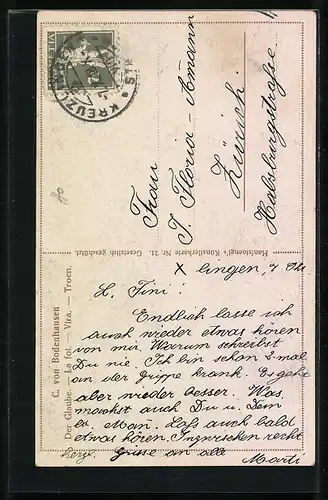 HELVETIA
KREUZL
Frau
J. Floria-Amann
Zürich.
Habsburgstraße
Hanfstaengl's Künstlerkarte Nr. 21. Gesetzlich geschützt.
C. von Bodenhausen
Der Glaube — La foi — Vira — Troen.
X lingen, 7 Okt.
L. Tini!
Endlich lasse ich
auch wieder etwas hören
von mir. Warum schreibst
Du nie. Ich bin schon 2 mal
an der Grippe krank. Es geht
aber wieder besser. Was
machst auch Du u. Dein
lb. Man. Laß auch bald
etwas hören. Inzwischen recht
herzl. Grüsse an alle
Marti